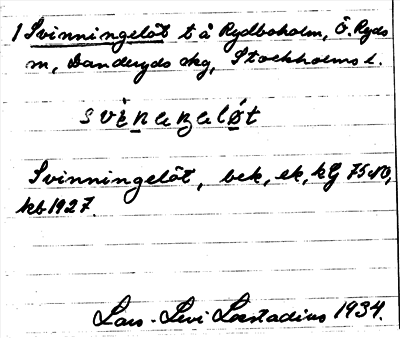 1 Svinningelöt t å Rydboholm, Ö. Ryds
sn, Danderyds skg, Stockholms l.
svìnaŋalø̀t
Svinningelöt, bek, ek, kG 75 NO,
kb 1927.
Lars-Levi Læstadius 1934.